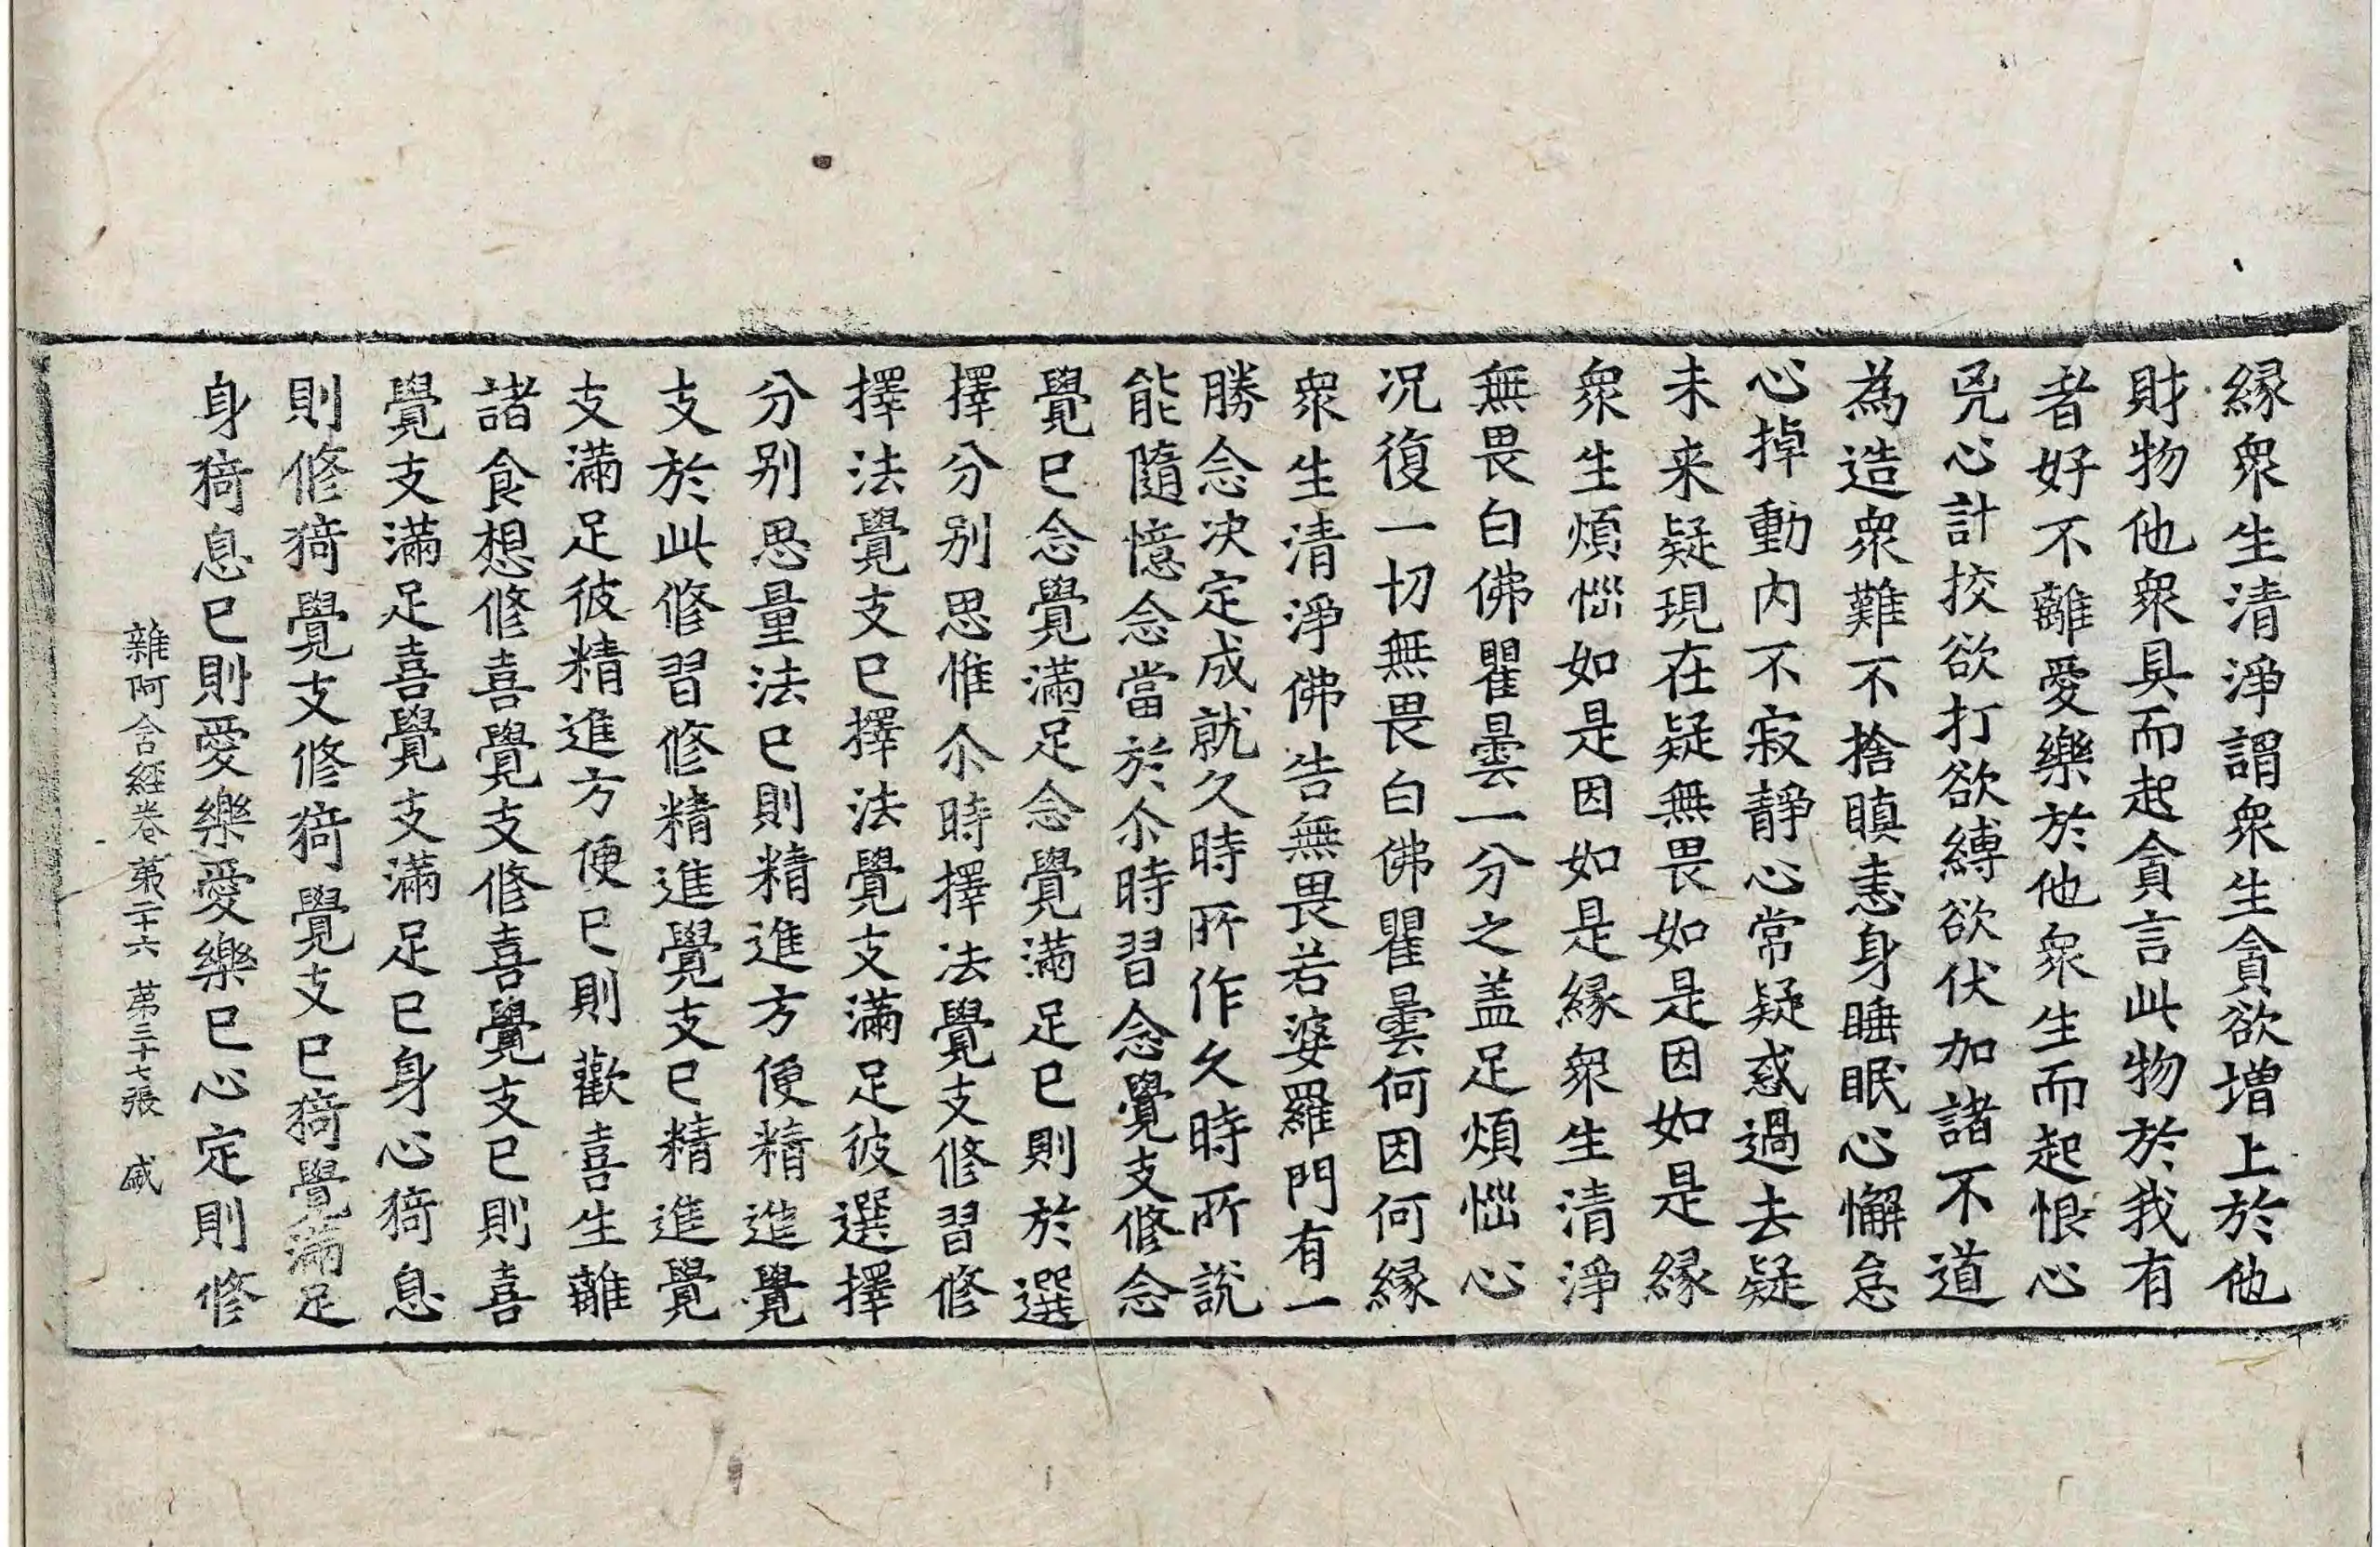 縁衆生清淨謂衆生貪欲增上於他
財物他衆具而起貪言此物於我有
者好不離愛樂於他衆生而起恨心
兇心計挍欲打欲縛欲伏加諸不道
為造衆難不捨瞋恚身睡眠心懈怠
心掉動内不寂靜心常疑惑過去疑
未来疑現在疑無畏如是因如是縁
衆生煩惱如是因如是縁衆生清淨
無畏白佛瞿曇一分之盖足煩惱心
况復一切無畏白佛瞿曇何因何縁
衆生清淨佛告無畏若婆羅門有一
勝念决定成就久時所作久時所説
能隨憶念當於尒時習念覺支修念
覺已念覺滿足念覺滿足已則於選
擇分别思惟尒時擇法覺支修習修
擇法覺支已擇法覺支滿足彼選擇
分别思量法已則精進方便精進覺
支於此修習修精進覺支已精進覺
支滿足彼精進方便已則歡喜生離
諸食想修喜覺支修喜覺支已則喜
覺支滿足喜覺支滿足已身心猗息
則修猗覺支修猗覺支已猗覺滿足
身猗息已則愛樂愛樂已心定則修
雜阿含經卷第二十六 第三十七張 咸